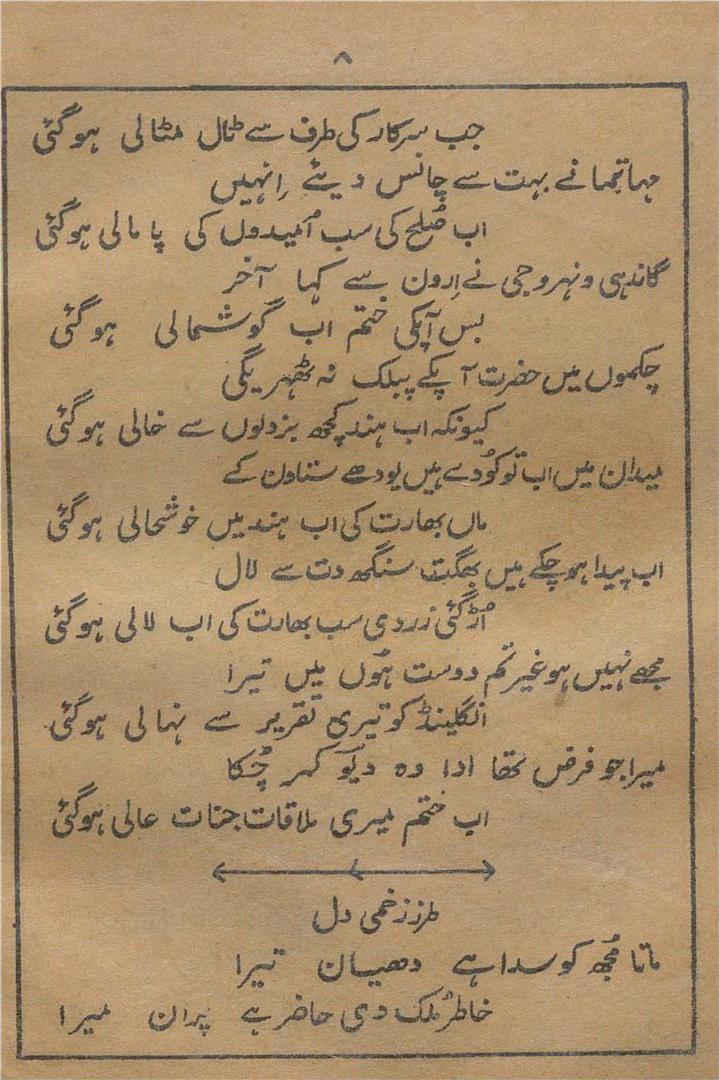 ۸
جب سرکار کی طرف سے ٹال مٹالی ہوگئی
مہاتما نے بہت سے چانس دیئے اِنہیں
اب صُلح کی سب اُمیدوں کی پامالی ہوگئی
گاندہی و نہرو جی نے اِرون سے کہا آخر
بس آپکی ختم اب گوشمالی ہوگئی
چکموں میں حضرت آپکے پبلک نہ ٹھہریگی
کیونکہ اب ہند کچھ بزدلوں سے خالی ہوگئی
میدان میں اب تو کُودے ہیں یودھے ستاون کے
ماں بھارت کی اب ہند میں خوشحالی ہوگئی
اب پیدا ہوچکے ہیں بھگت سنگھ دت سے لال
اُڑ گئی زردی سب بھارت کی اب لالی ہوگئی
مجھے نہیں ہو غیر تُم دوست ہُوں میں تیرا
انگلینڈ کو تیری تقریر سے نہالی ہوگئی
میرا جو فرض تھا ادا وہ دیو کہر چُکا
اب ختم میری ملاقات جنات عالی ہوگئی
طرز زخمی دل
ماتا مُجھ کو سدا ہے دھیان تیرا
خاطر مُلک دی حاضر ہے پران میرا